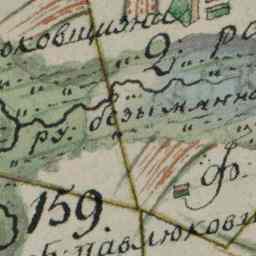 юковщизна
2. РО
ру: безымянно
ф.
159.
павлюкови